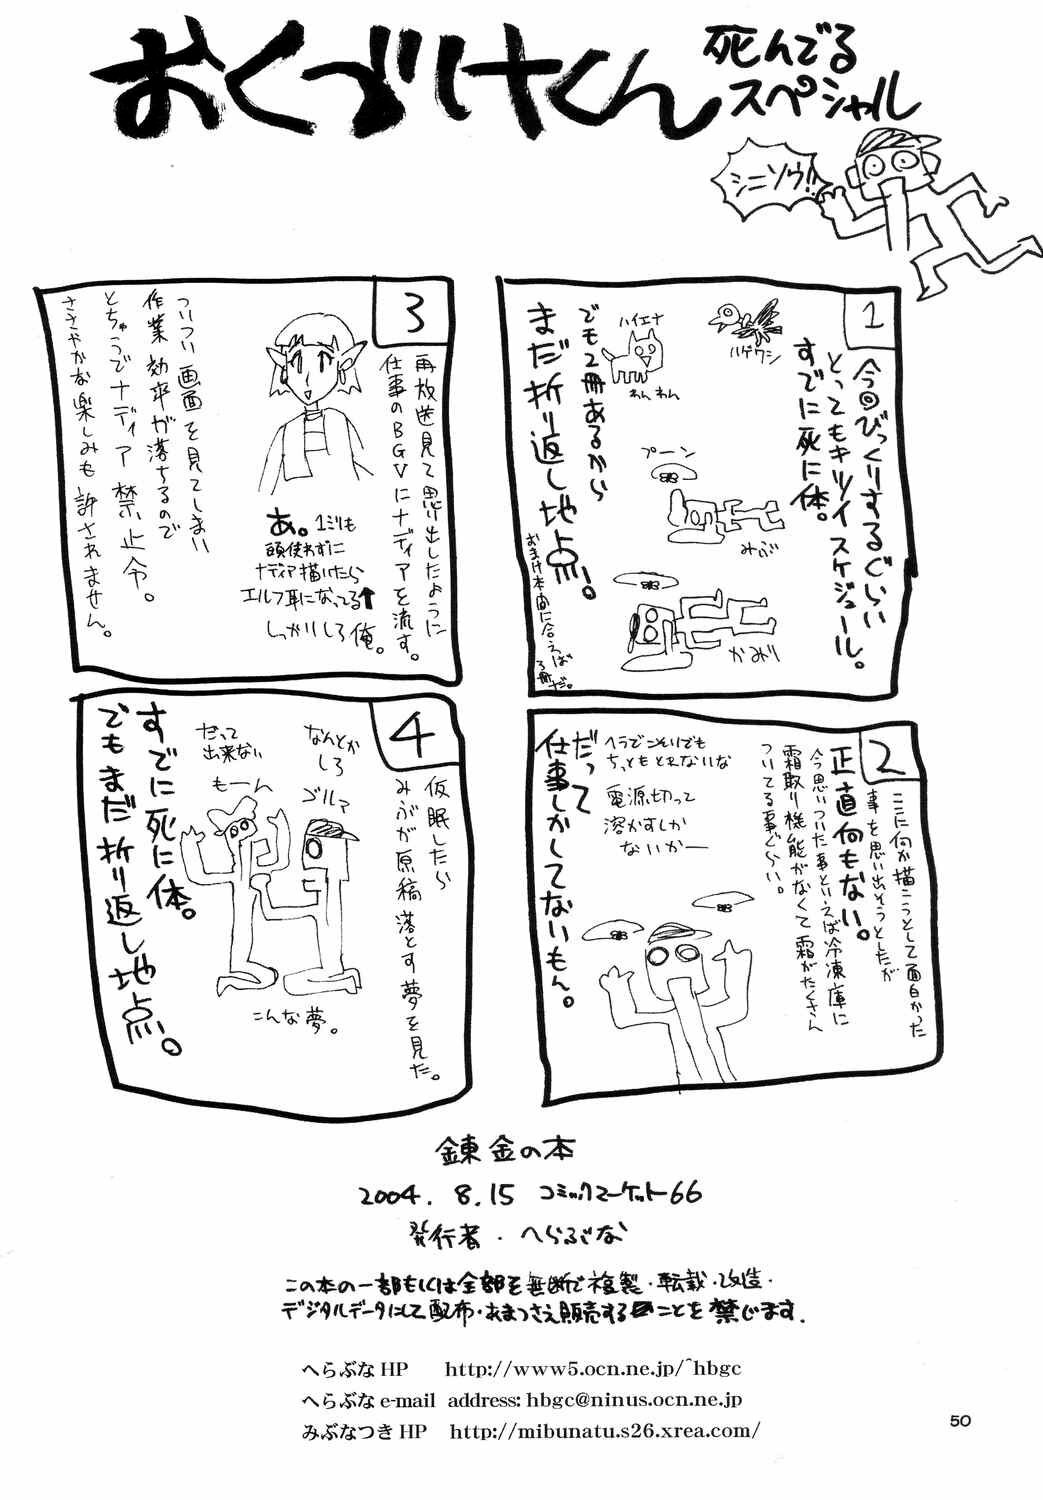 おくづけくん
死んでる
スペシャル
シニソウ!!
1
今回びっくりするぐらい
とってもキツイスケジュール。
すでに死に体。
ハゲワシ
ハイエナ
わんわん
プーン
みぶ
かみり
でも2冊あるから
まだ折り返し地点。
おまけ本間に合えば
3冊だ。
2
ここに何か描こうとして面白かった
事を思い出そうとしたが
正直何もない。
今思いついた事といえば冷凍庫に
霜取り機能がなくて霜がたくさん
ついてる事ぐらい。
ヘラでこそいでも
ちっともとれないな
電源切って
溶かすしか
ないかー
だって
仕事しかしてないもん。
3
再放送見て思い出したように
仕事のBGVにナディアを流す。
あ。1ミリも
頭使わずに
ナディア描いたら
エルフ耳になってる↑
しっかりしろ俺。
ついつい画面を見てしまい
作業効率が落ちるので
とちゅうでナディア禁止令。
ささやかな楽しみも許されません。
4
仮眠したら
みぶが原稿落とす夢を見た。
なんとか
しろ
ゴルァ
だって
出来ない
もーん
こんな夢。
すでに死に体。
でもまだ折り返し地点。
錬金の本
2004. 8.15 コミックマーケット66
発行者・へらぶな
この本の一部もしくは全部を無断で複製・転載・改造・
デジタルデータにして配布・あまつさえ販売することを禁じます.
へらぶなHP http://www5.ocn.ne.jp/~hbgc
へらぶなe-mail address: hbgc@ninus.ocn.ne.jp
みぶなつきHP http://mibunatu.s26.xrea.com/
50